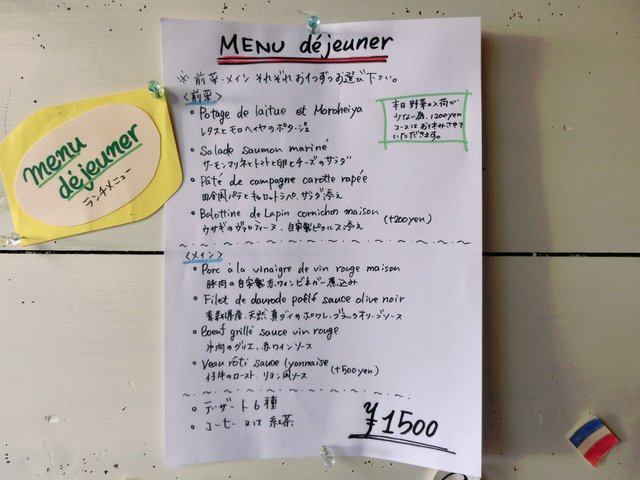 MENU déjeuner
※ 前菜・メイン それぞれ お1つずつお選び下さい。
<前菜>
• Potage de laitue et Moroheiya
レタスと モロヘイヤのポタージュ
• Salade saumon mariné
サーモンマリネとトマトと卵とチーズのサラダ
• Pâté de campagne carotte rapée
田舎風パテとキャロットラペ、サラダ添え
• Ballottine de Lapin cornichon maison
ウサギの 自家製ピクルス添え
(+200yen)
本日 野菜の入荷が
少ない為、1200yen
コースはお休みさせて
いただきます。
<メイン>
• Porc à la vinaigre de vin rouge maison
豚肉の自家製赤ワインビネガー煮込み
• Filet de daurade poêlé sauce olive noir
産 天然 真ダイのポワレ、ブラックオリーブソース
• Boeuf grillé sauce vin rouge
牛肉のグリエ、赤ワインソース
• Veau rôti sauce lyonnaise
仔牛のロースト、リヨン風ソース
(+500yen)
• デザート6種
• コーヒー 又は 紅茶
¥1500
menu
déjeuner
ランチメニュー